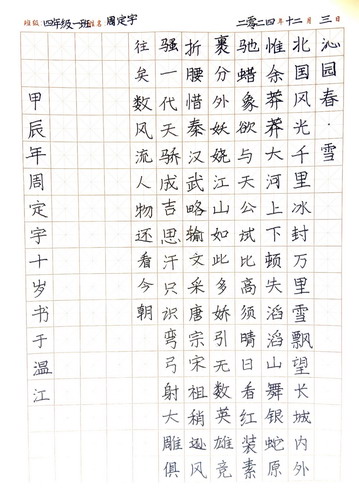 班级 四年级一班 姓名 周定宇 二〇二四年十二月三日
沁园春·雪
北国风光千里冰封万里雪飘望长城内外
惟余莽莽大河上下顿失滔滔山舞银蛇原
驰蜡象欲与天公试比高须晴日看红装素
裹分外妖娆江山如此多娇引无数英雄竞
折腰惜秦汉武略输文采唐宗宋祖稍逊风
骚一代天骄成吉思汗只识弯弓射大雕俱
往矣数风流人物还看今朝
甲辰年周定宇十岁书于温江